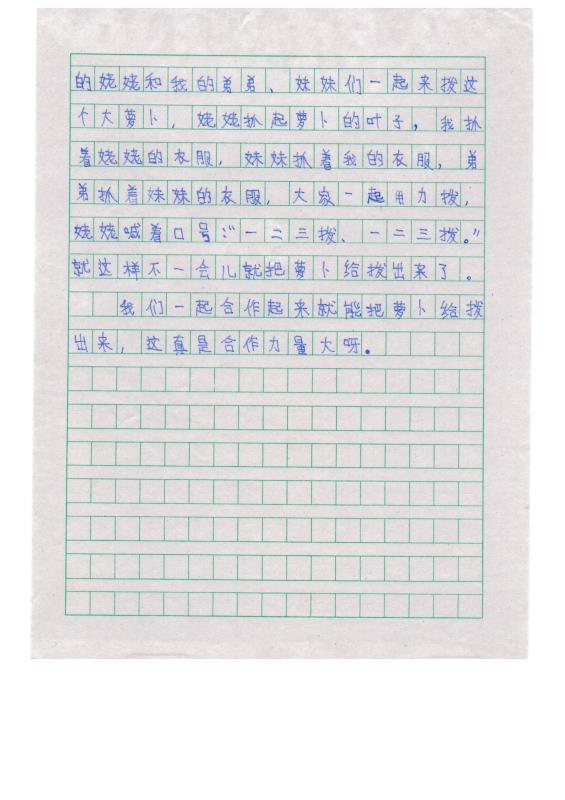 的姥姥和我的弟弟、妹妹们一起来拨这
个大萝卜，姥姥抓起萝卜的叶子，我抓
着姥姥的衣服，妹妹抓着我的衣服，弟
弟抓着妹妹的衣服，大家一起用力拨，
姥姥喊着口号：“一二三拨、一二三拨。”
就这样不一会儿就把萝卜给拨出来了。
我们一起合作起来就能把萝卜给拨
出来，这真是合作力量大呀。